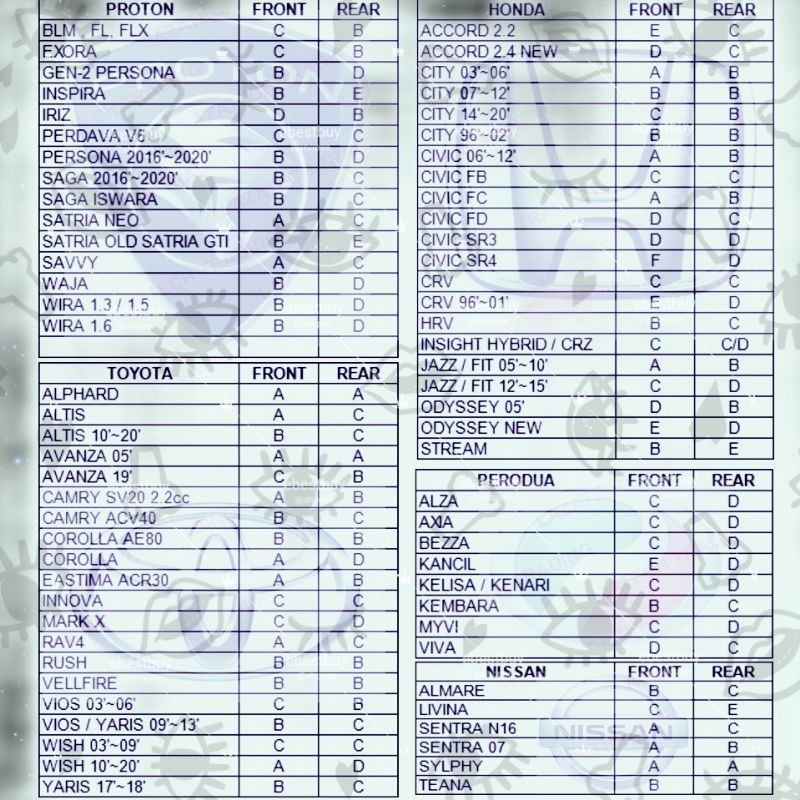 PROTON FRONT REAR
BLM , FL, FLX C B
F.XORA C B
GEN-2 PERSONA B D
INSPIRA B E
IRIZ D B
PERDAVA V6 C C
PERSONA 2016'~2020' B D
SAGA 2016'~2020' B C
SAGA ISWARA B C
SATRIA NEO A C
SATRIA OLD SATRIA GTI B E
SAVVY A C
WAJA B D
WIRA 1.3 / 1.5 B D
WIRA 1.6 B D
TOYOTA FRONT REAR
ALPHARD A A
ALTIS A C
ALTIS 10'~20' B C
AVANZA 05' A A
AVANZA 19' C B
CAMRY SV20 2.2cc A B
CAMRY ACV40 B C
COROLLA AE80 B B
COROLLA A D
EASTIMA ACR30 A B
INNOVA C C
MARK X C D
RAV4 A C
RUSH B B
VELLFIRE B B
VIOS 03'~06' C B
VIOS / YARIS 09'~13' B C
WISH 03'~09' C C
WISH 10'~20' A D
YARIS 17'~18' B C
HONDA FRONT REAR
ACCORD 2.2 E C
ACCORD 2.4 NEW D C
CITY 03'~06' A B
CITY 07'~12' B B
CITY 14'~20' C B
CITY 96'~02' B B
CIVIC 06'~12' A B
CIVIC FB C C
CIVIC FC A B
CIVIC FD D C
CIVIC SR3 D D
CIVIC SR4 F D
CRV C C
CRV 96'~01' E D
HRV B C
INSIGHT HYBRID / CRZ C C/D
JAZZ / FIT 05'~10' A B
JAZZ / FIT 12'~15' C D
ODYSSEY 05' D B
ODYSSEY NEW E D
STREAM B E
PERODUA FRONT REAR
ALZA C D
AXIA C D
BEZZA C D
KANCIL E D
KELISA / KENARI C D
KEMBARA B C
MYVI C D
VIVA D C
NISSAN FRONT REAR
ALMARE B C
LIVINA C E
SENTRA N16 A C
SENTRA 07 A B
SYLPHY A A
TEANA B B
NISSAN
ebestbuy
ebestbuy
ebestbuy
ebestbuy